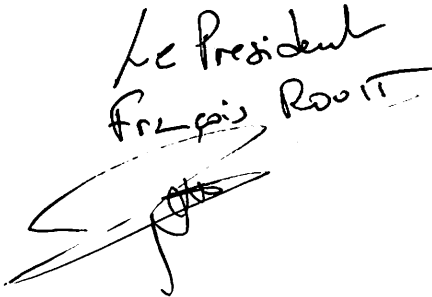 Le President
François ROUIT